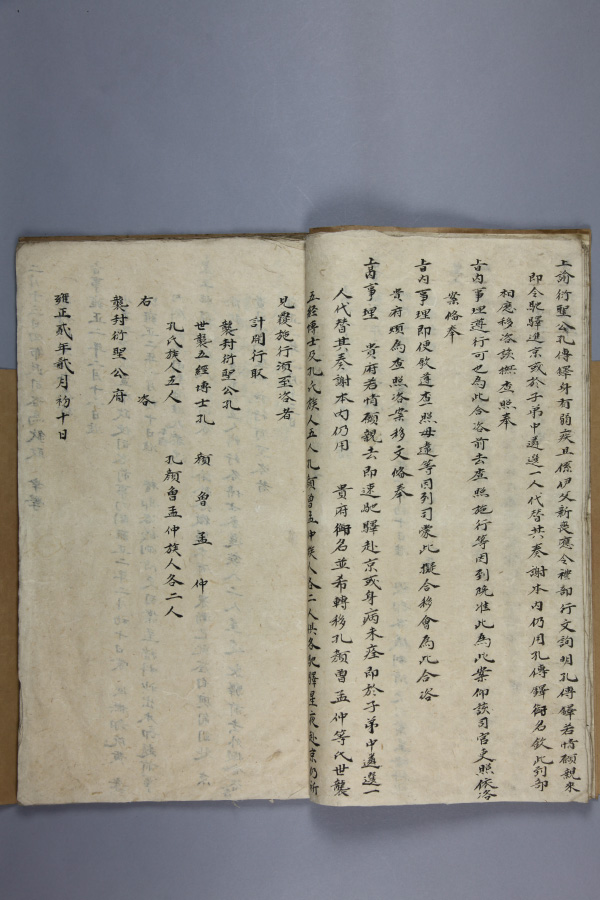 上諭衍聖公孔傳鐸身有弱疾且係伊父新喪應令禮部行文詢明孔傳鐸若情願親來
即令馳驛進京或於子弟中遴選一人代替共奏謝本內仍用孔傳鐸銜名欽此到部
相應移咨該撫查照奉
旨內事理遵行可也為此合咨前去查照施行等因到院准此為此案仰該司官吏照依咨
案俻奉
旨內事理即便欽遵查照毋違等因到司蒙此擬合移會為此合咨
貴府煩為查照咨案移文俻奉
上旨事理 貴府若情願親去即速馳驛赴京或身病未痊即於子弟中遴選一
人代替共奏謝本內仍用 貴府銜名並希轉移孔顏曾孟仲等氏世襲
五經博士及孔氏族人五人孔顏曾孟仲族人各二人與各馳驛星夜赴京仍祈
見覆施行須至咨者
計開行取
襲封衍聖公孔
世襲五經博士孔 顏 曾 孟 仲
孔氏族人五人 孔顏曾孟仲族人各二人
右 咨
襲封衍聖公府
雍正貳年貳月初十日